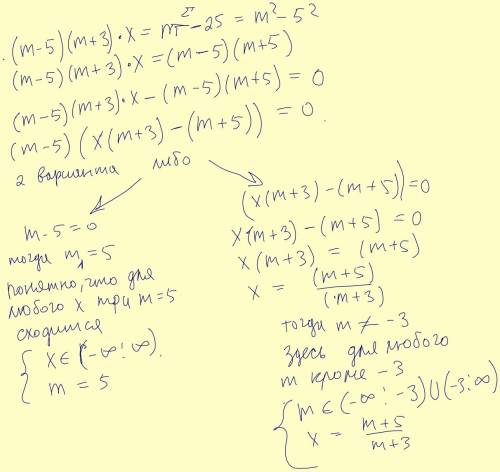 (m-5)(m+3)·x = m²-25 = m²-5²
(m-5)(m+3)·x = (m-5)(m+5)
(m-5)(m+3)·x - (m-5)(m+5) = 0
(m-5)(x(m+3)-(m+5)) = 0.
2 варианта либо
m-5=0
тогда m₁=5
понятно, что для
любого x при m=5
сходится
{ x∈(-∞:∞).
m = 5
(x(m+3)-(m+5))=0
x(m+3)-(m+5)=0
x(m+3) = (m+5)
x = (m+5)/(m+3)
тогда m≠-3
здесь для любого
m кроме -3
{ m∈(-∞:-3)∪(-3:∞)
x = m+5/m+3